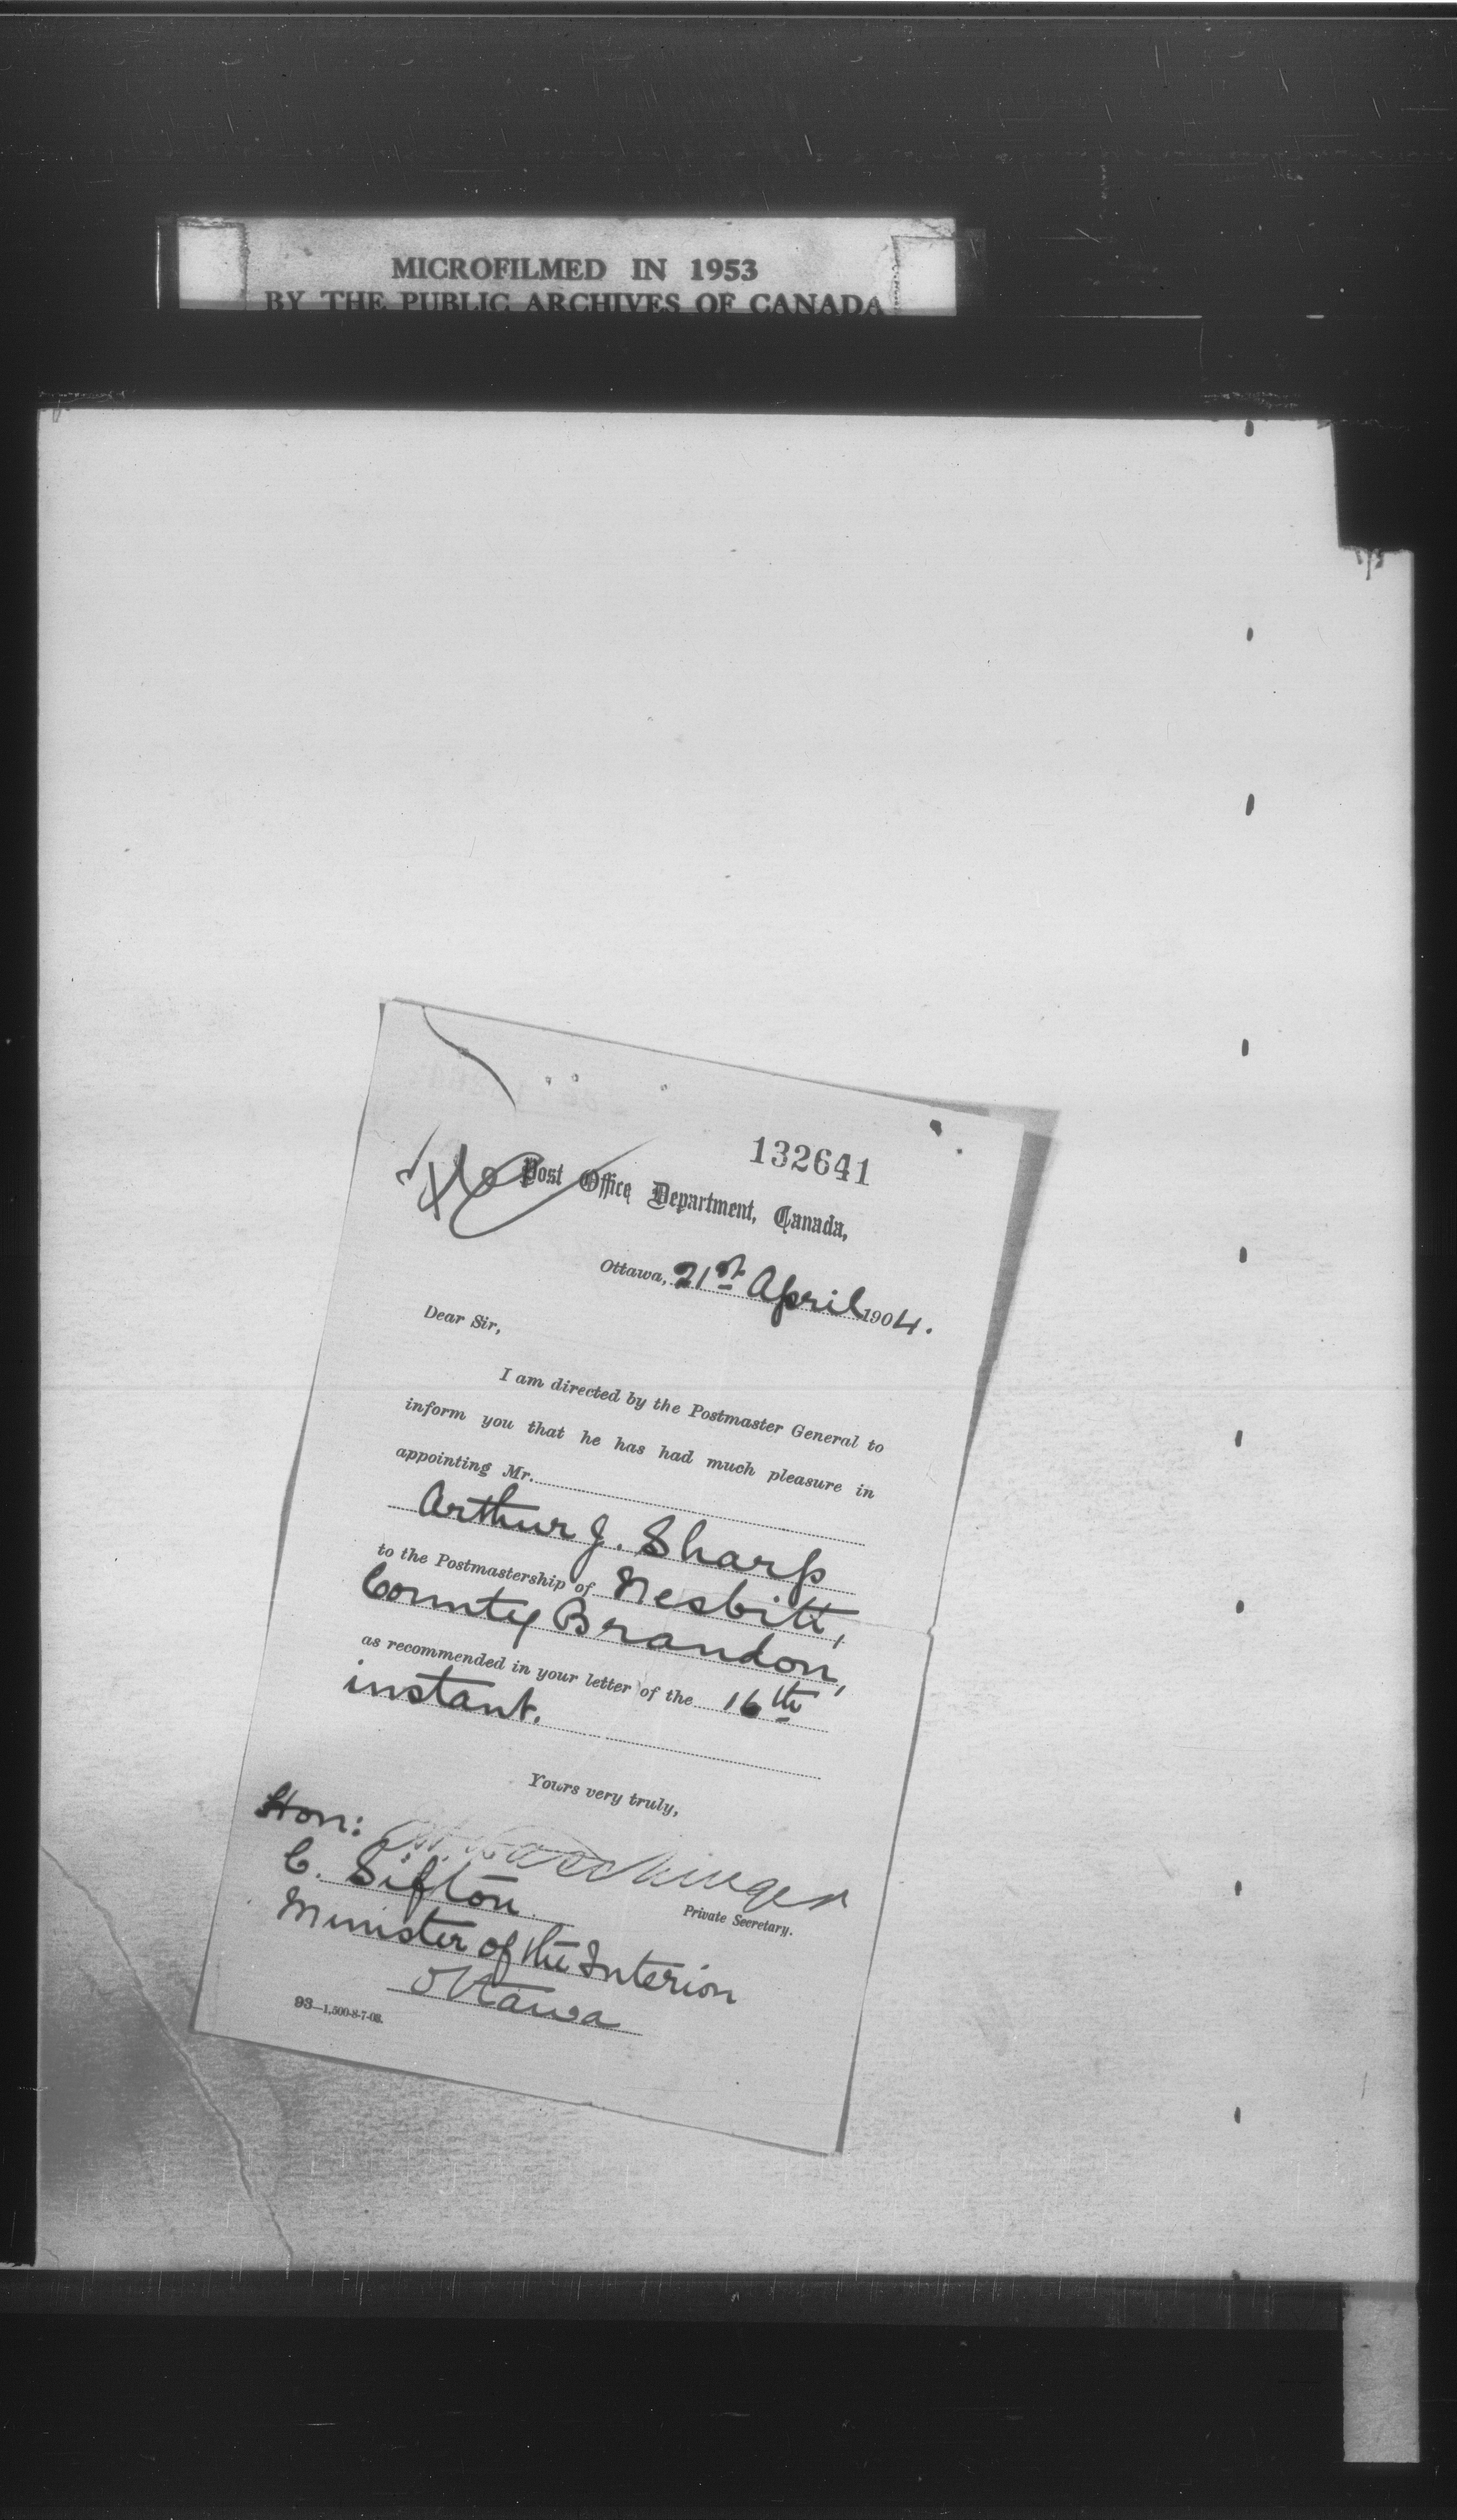 MICROFILMED IN 1953
BY THE PUBLIC ARCHIVES OF CANADA
132641
Post Office Department, Canada,
Ottawa, 21st April 1904.
Dear Sir,
I am directed by the Postmaster General to
inform you that he has had much pleasure in
appointing Mr.
Arthur J. Sharp
to the Postmastership of Nesbitt,
County Brandon,
as recommended in your letter of the 16th
instant.
Yours very truly,
Hon:
C. Sifton
Private Secretary.
Minister of the Interior
Ottawa
93—1,500-8-7-03.